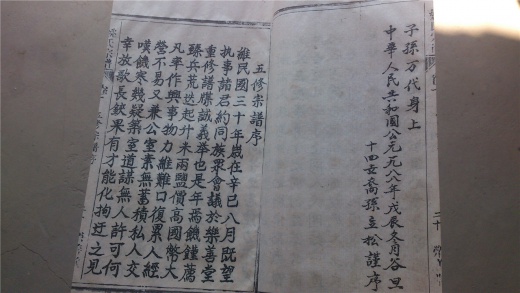 子孫万代身上
中華人民共和國公元一九八八年戊辰冬月谷旦
十四世裔孫立松謹序
五修宗譜序
維民國三十年歲在辛巳八月既望
执事諸君約同族眾會議於樂善堂
重修譜牒誠義举也是年焉饑饉薦
臻兵荒迭起升米兩盬價高國幣大
凡率作興事物力維難口復累人經
營不易又兼公室素無蓄積私人交
嘆饑寒幾疑築室道謀無人許可何
幸放歌長鋏果有才能化拘迂之見
二十